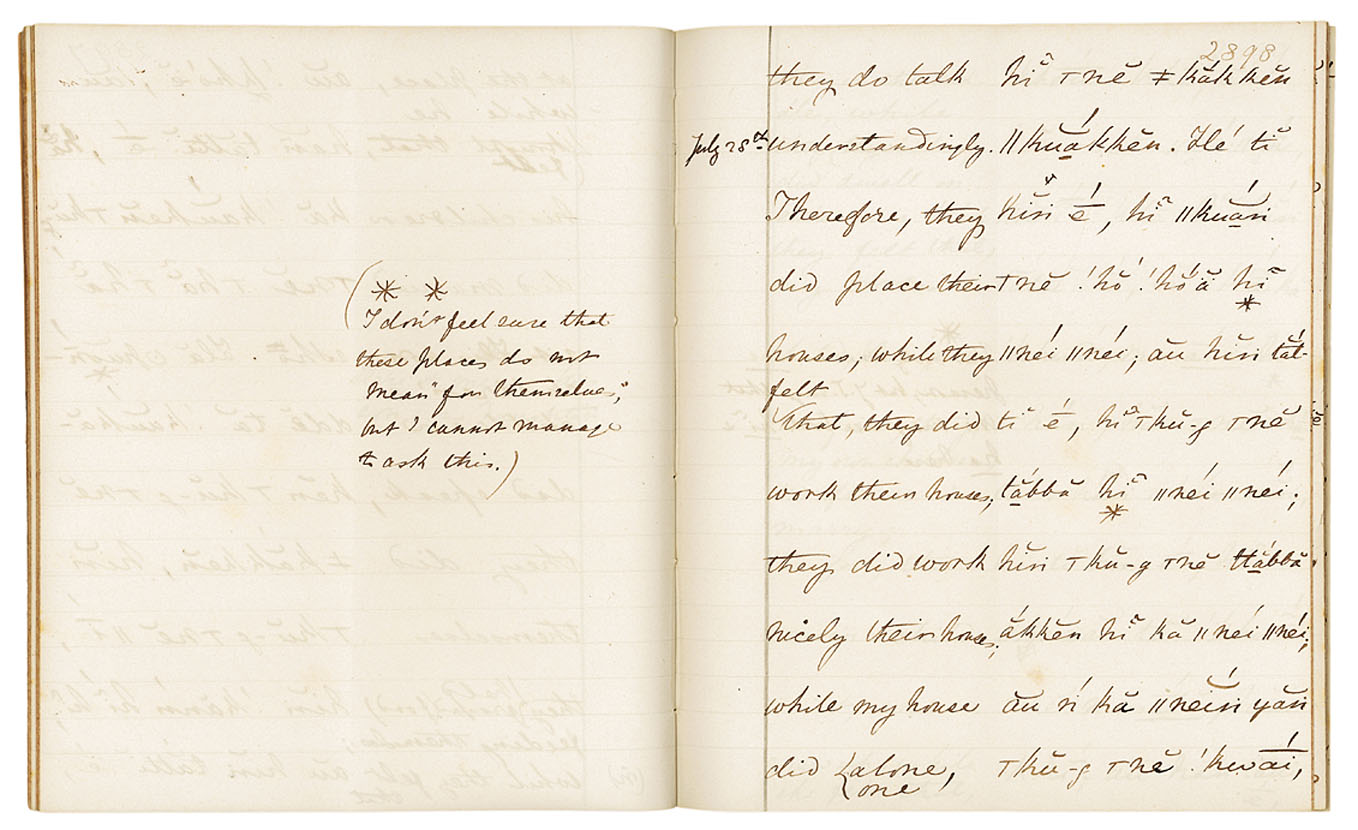 ✳ ✳
(I don't feel sure that
these places do not
mean "for themselves",
but I cannot manage
to ask this.)
2898
they do talk hĭ ⊤nĕ ǂkăkkĕn
July 28th understandingly. ǁkŭákkĕn. Hé tĭ
Therefore, they hĭṅ é, hĭ ǁkŭáṅ
did place their ⊤nĕ !hŏ !hóă hĭ
✳
houses, while they ǁnéi ǁnéi, ău hĭṅ tăt-
felt
that, they did tĭ é, hĭ ⊤kŭ-g ⊤nĕ
work their houses; tăbbă hĭ ǁnéi ǁnéi;
✳
they did work hĭṅ ⊤kŭ-g ⊤nĕ ttăbbă
nicely their houses; ákkĕn hĭ kă ǁnéi ǁnéi;
while my house ău ṅ kă ǁnĕiṅ yăṅ
did (alone, ⊤kŭ-g ⊤nĕ !kwăí,
(one